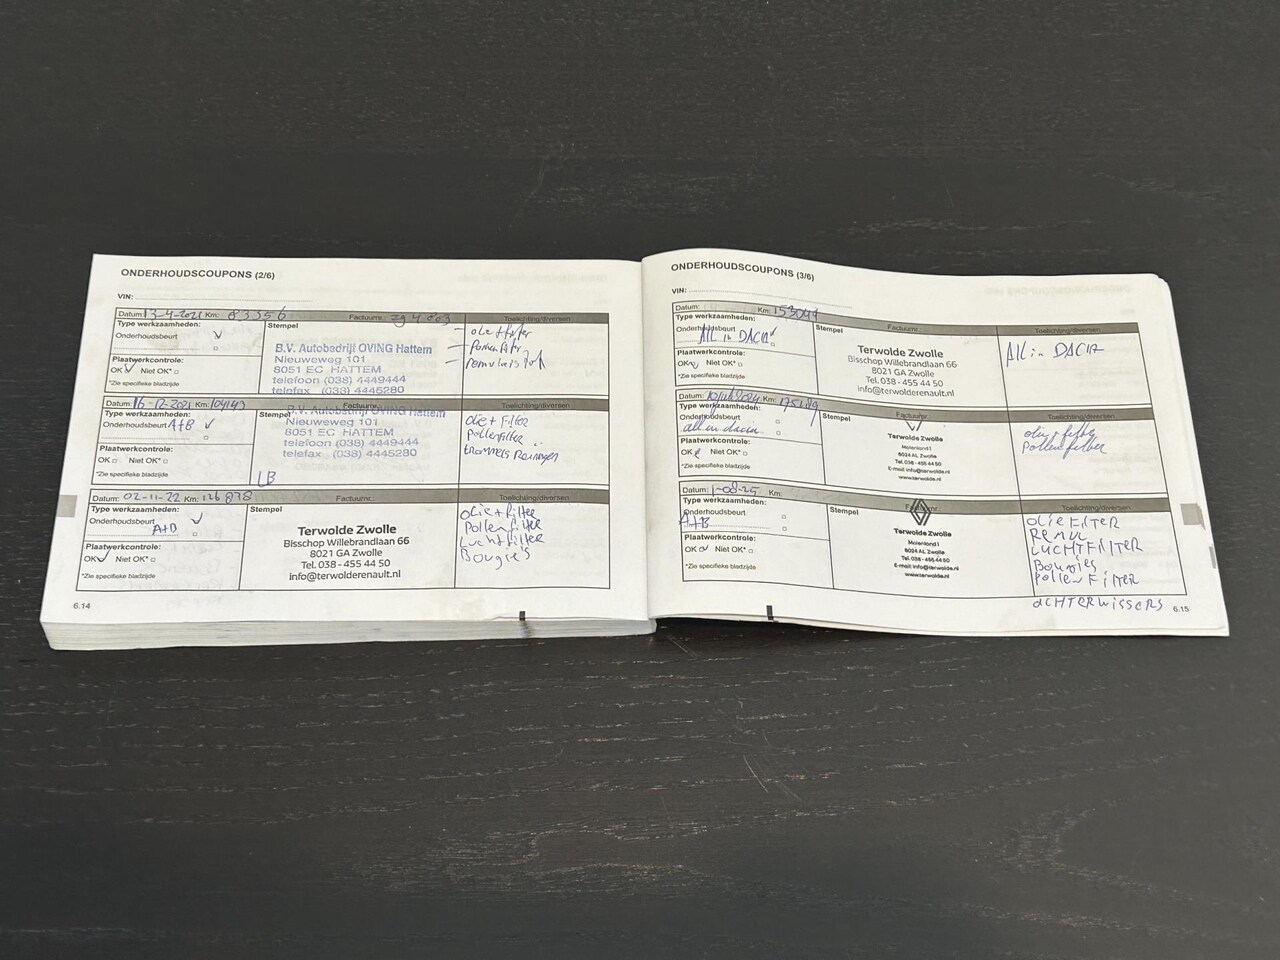 ONDERHOUDSCOUPONS (2/6)
VIN:
Datum: 13-4-2021 Km: 83356 Factuurnr.:
Type werkzaamheden:
Onderhoudsbeurt
Plaatwerkcontrole:
OK Niet OK*
*Zie specifieke bladzijde
Stempel
B.V. Autobedrijf OVING Hattem
Nieuweweg 101
8051 EC HATTEM
telefoon (038) 4449444
telefax (038) 4445280
Toelichting/diversen
- olie + filter
- Pollenfilter
- remvloeistof
Datum: 16-12-2021 Km: 104143 Factuurnr.:
Type werkzaamheden:
Onderhoudsbeurt A+B
Plaatwerkcontrole:
OK Niet OK*
*Zie specifieke bladzijde
Stempel
B.V. Autobedrijf OVING Hattem
Nieuweweg 101
8051 EC HATTEM
telefoon (038) 4449444
telefax (038) 4445280
LB
Toelichting/diversen
olie + Filter
Pollenfilter
trommels Reinigen
Datum: 02-11-22 Km: 126878 Factuurnr.:
Type werkzaamheden:
Onderhoudsbeurt
A+B
Plaatwerkcontrole:
OK Niet OK*
*Zie specifieke bladzijde
Stempel
Terwolde Zwolle
Bisschop Willebrandlaan 66
8021 GA Zwolle
Tel. 038 - 455 44 50
info@terwolderenault.nl
Toelichting/diversen
Olie + filter
Pollenfilter
Luchtfilter
Bougie's
6.14
ONDERHOUDSCOUPONS (3/6)
VIN:
Datum: Km: 153044 Factuurnr.:
Type werkzaamheden:
Onderhoudsbeurt
All in DACIA
Plaatwerkcontrole:
OK Niet OK*
*Zie specifieke bladzijde
Stempel
Terwolde Zwolle
Bisschop Willebrandlaan 66
8021 GA Zwolle
Tel. 038 - 455 44 50
info@terwolderenault.nl
Toelichting/diversen
All in DACIA
Datum: Km: Factuurnr.:
Type werkzaamheden:
Onderhoudsbeurt
all in dacia
Plaatwerkcontrole:
OK Niet OK*
*Zie specifieke bladzijde
Stempel
Terwolde Zwolle
Molenland 1
8024 AL Zwolle
Tel. 038 - 455 44 50
E-mail: info@terwolde.nl
www.terwolde.nl
Toelichting/diversen
olie + filter
pollenfilter
Datum: 1-08-25 Km: Factuurnr.:
Type werkzaamheden:
Onderhoudsbeurt
A+B
Plaatwerkcontrole:
OK Niet OK*
*Zie specifieke bladzijde
Stempel
Terwolde Zwolle
Molenland 1
8024 AL Zwolle
Tel. 038 - 455 44 50
E-mail: info@terwolde.nl
www.terwolde.nl
Toelichting/diversen
OLIE FILTER
REMVL
LUCHTFILTER
Bougies
Pollen FILTER
ACHTERWISSERS
6.15